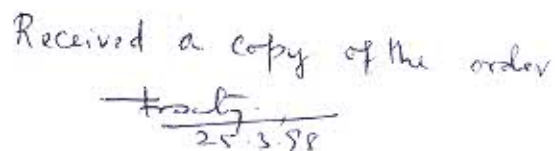 Received a copy of the order
25.3.98